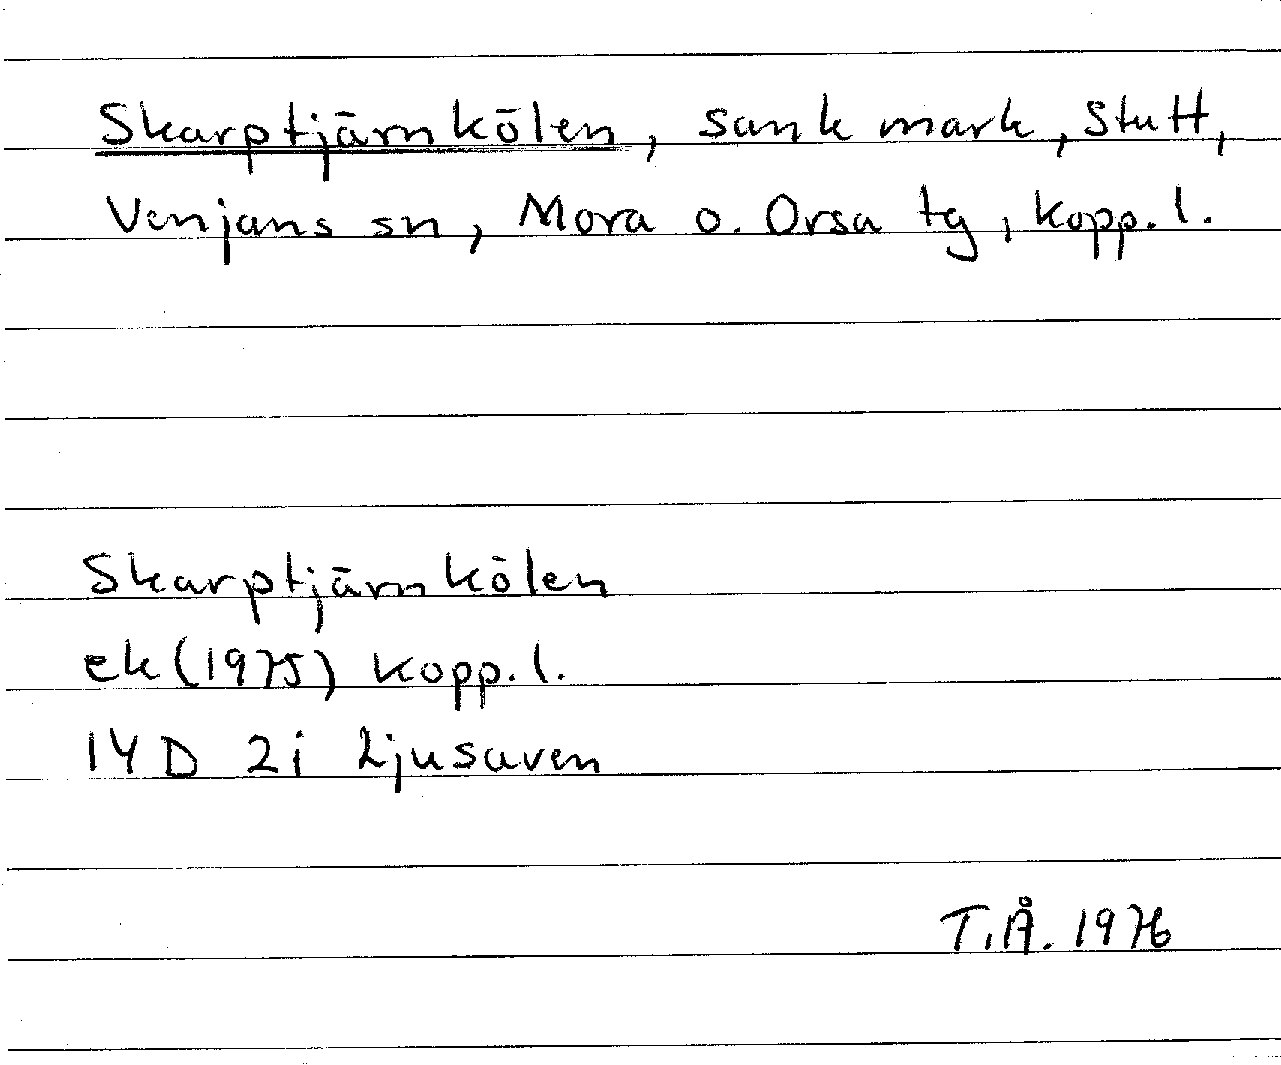 Skarptjärnkölen, sank mark, Stutt,
Venjans sn, Mora o. Orsa tg, Kopp. l.
Skarptjärnkölen
ek (1975) Kopp. l.
14 D 2i Ljusaven
T.Å. 1976